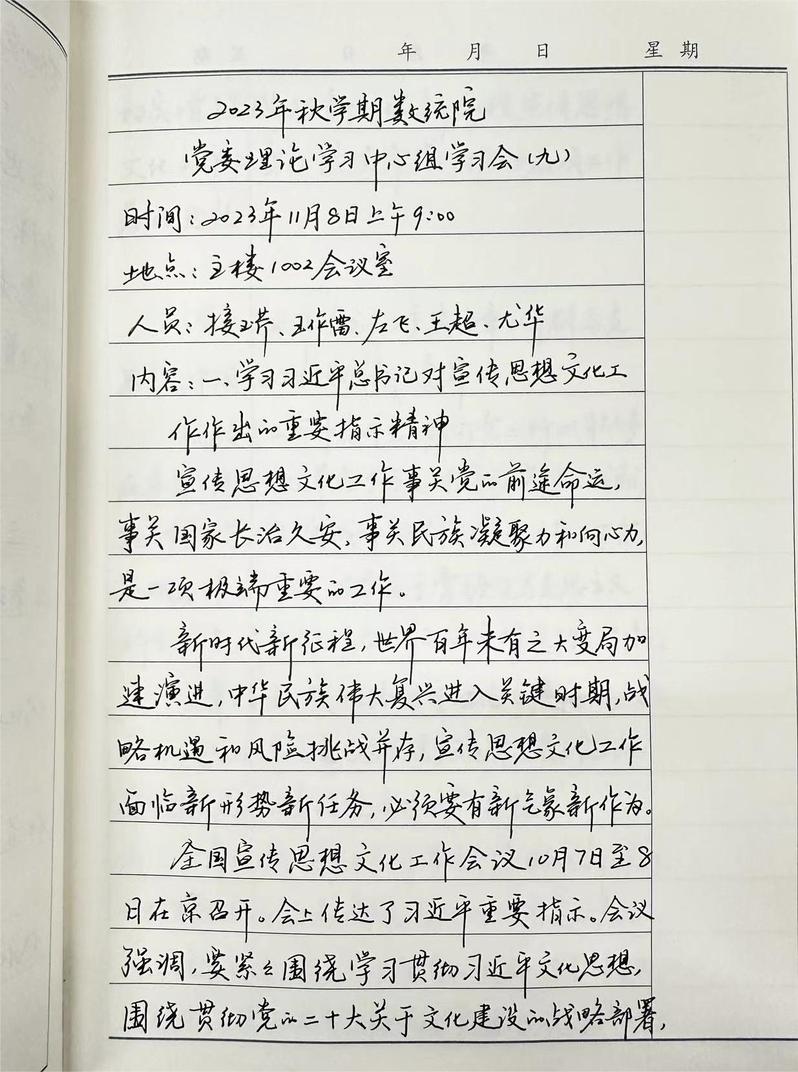 年 月 日 星期
2023年秋学期数统院
党委理论学习中心组学习会(九)
时间:2023年11月8日上午9:00
地点:主楼1002会议室
人员:接玉芹、王作雷、左飞、王超、尤华
内容:一、学习习近平总书记对宣传思想文化工
作作出的重要指示精神
宣传思想文化工作事关党的前途命运,
事关国家长治久安,事关民族凝聚力和向心力,
是一项极端重要的工作。
新时代新征程,世界百年未有之大变局加
速演进,中华民族伟大复兴进入关键时期,战
略机遇和风险挑战并存,宣传思想文化工作
面临新形势新任务,必须要有新气象新作为。
全国宣传思想文化工作会议10月7日至8
日在京召开。会上传达了习近平重要指示。会议
强调,要紧紧围绕学习贯彻习近平文化思想,
围绕贯彻党的二十大关于文化建设的战略部署,